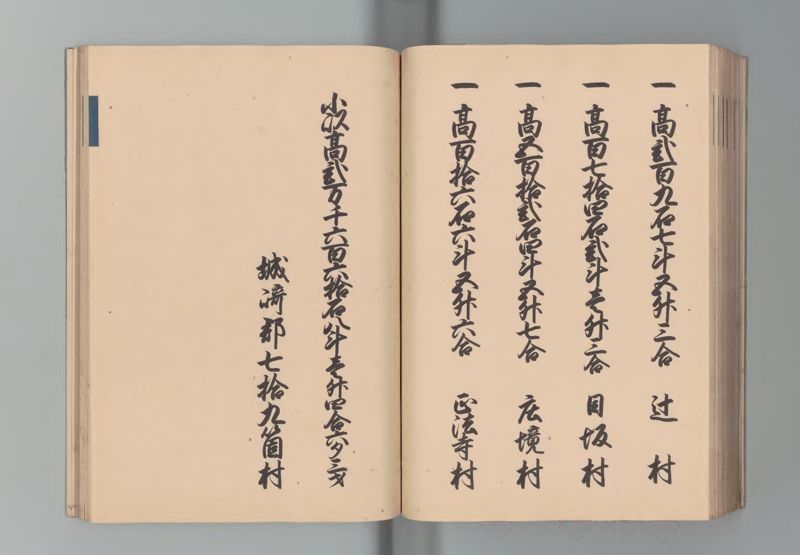 一 高弐百九石七斗五升三合 辻村
一 高百七拾四石弐斗壱升三合 目坂村
一 高五百拾弐石四斗五升七合 広境村
一 高百拾六石六斗五升六合 正法寺村
小以高弐万千六百六拾石八斗壱升四合六夕三才
城崎郡七拾九箇村